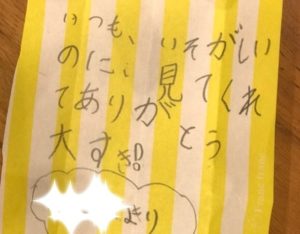 いつも、いそがしい
のに、見てくれ
てありがとう
大すき!!
より